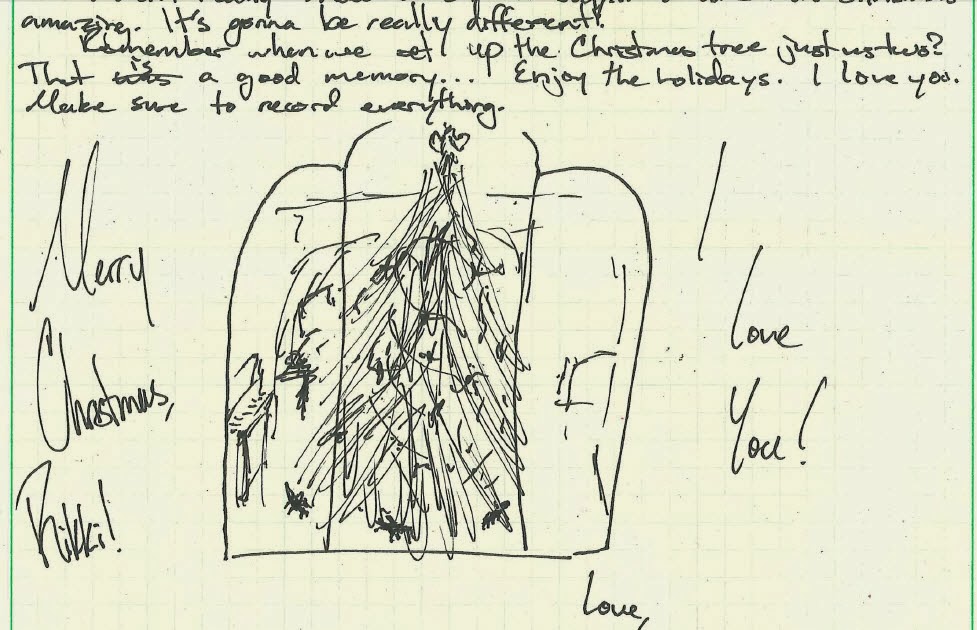 amazing. It's gonna be really different!
Remember when we set up the Christmas tree just us two?
That is a good memory... Enjoy the holidays. I love you.
Make sure to record everything.
Merry
Christmas,
Rikki!
I
love
You!
Love,